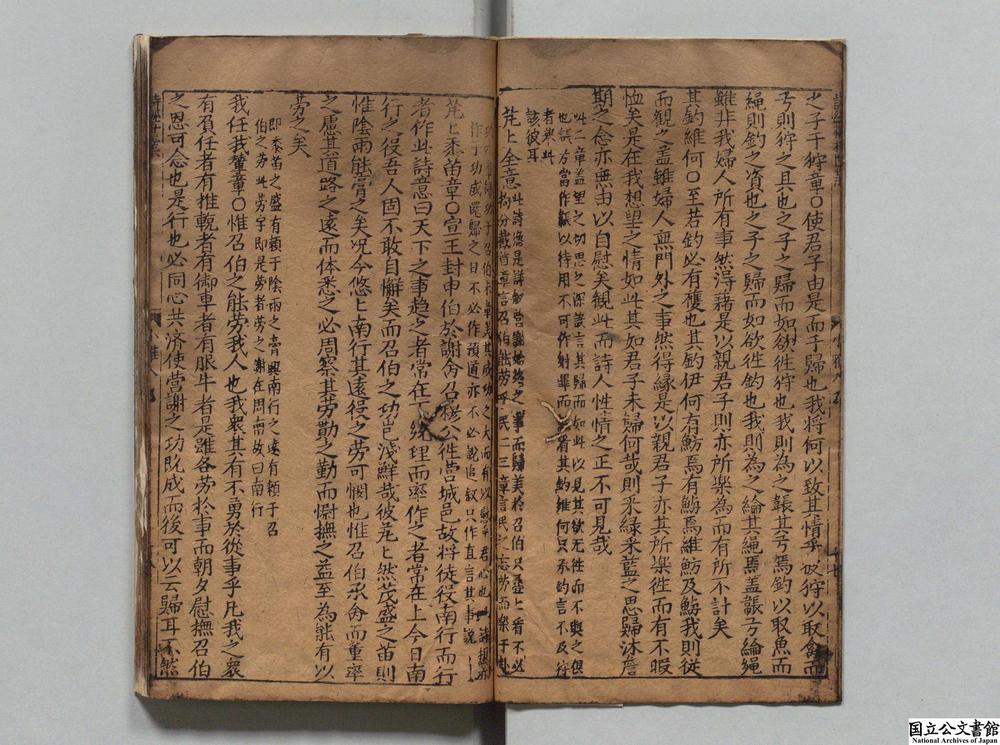 之子于狩章○使君子由是而于歸也我將何以致其情乎彼狩以取禽而
弓則狩之具也之子之歸而如欲徃狩也我則為之韔其弓焉釣以取魚而
繩則釣之資也之子之歸而如欲徃釣也我則為之綸其繩焉盖韔弓綸繩
雖非我婦人所有事然得藉是以親君子則亦所樂為而有所不計矣
其釣維何○至若釣必有獲也其釣伊何有魴焉有鱮焉維魴及鱮我則從
而觀之盖雖婦人無門外之事然得緣是以親君子亦其所樂徃而有不暇
恤矣是在我想望之情如此其如君子未歸何哉則采緑采藍之思歸沐詹
期之念亦無由以自慰矣觀此而詩人性情之正不可見哉
此二章盖望之切思之深議言其歸而如此以見其欲無徃而不與之俱
也
該彼耳
芃芃全意此詩
芃芃黍苗章○宣王封申伯於謝命召穆公徃營城邑故將徒役南行而行
者作此詩意曰天下之事趨之者常在下統理而率作之者常在上今日南
行之役吾人固不敢自懈矣而召伯之功豈淺鮮哉彼芃芃然茂盛之苗則
惟陰雨能膏之矣况今悠悠南行其遠役之勞可憫也惟召伯承命而重率
之慮其道路之遠而体悉之必周察其劳勩之勤而慰撫之益至為能有以
劳之矣
即黍苗之盛有頼于陰雨之膏興南行之遠有頼于召
伯之劳此劳字即是劳者劳之謝在周南故曰南行
我任我輦章○惟召伯之能劳我人也我衆其有不勇於從事乎凡我之衆
有負任者有推輓者有御車者有服牛者是雖各劳於事而朝夕慰撫召伯
之恩可念也是行也必同心共济使营謝之功既成而後可以云歸耳不然
国立公文書館
National Archives of Japan